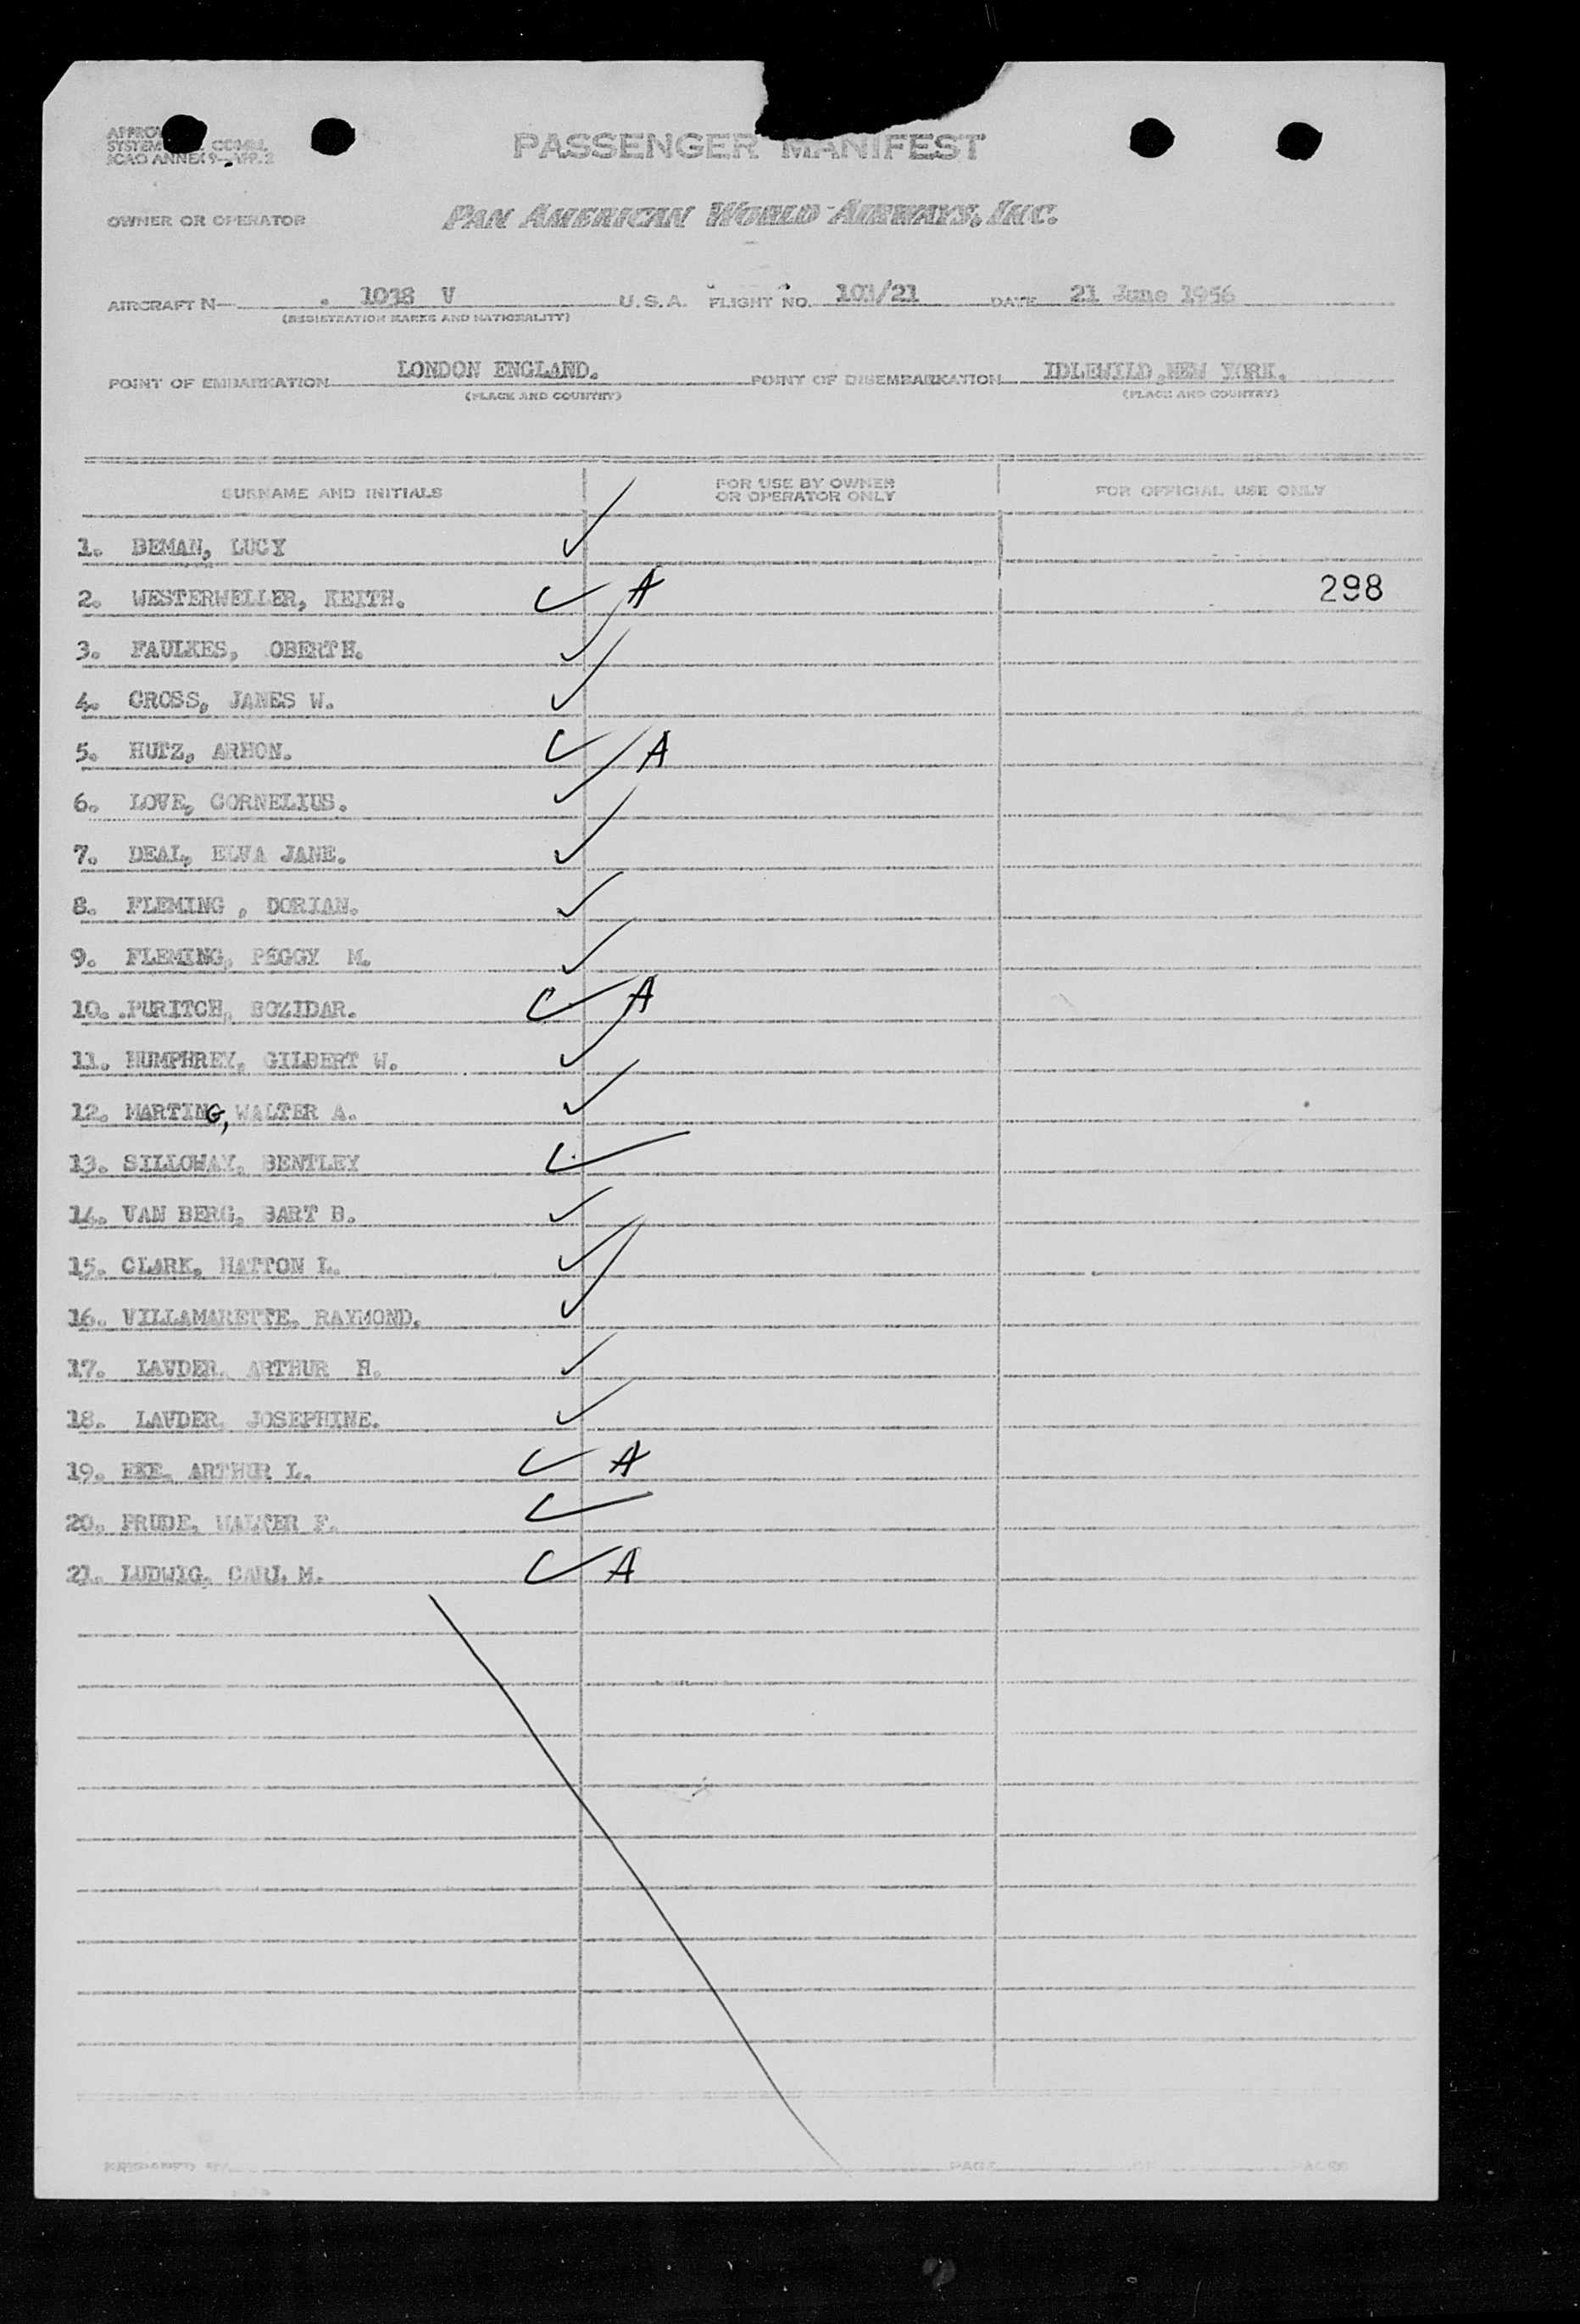 PASSENGER MANIFEST
SYSTEM COMM.
ICAO ANNEX 9—APP. 2
OWNER OR OPERATOR PAN AMERICAN WORLD AIRWAYS, INC.
AIRCRAFT N— 1038 V U.S.A. FLIGHT NO. 101/21 DATE 21 June 1956
(REGISTRATION MARKS AND NATIONALITY)
POINT OF EMBARKATION LONDON ENGLAND. POINT OF DISEMBARKATION IDLEWILD, NEW YORK.
(PLACE AND COUNTRY) (PLACE AND COUNTRY)
SURNAME AND INITIALS FOR USE BY OWNER OR OPERATOR ONLY FOR OFFICIAL USE ONLY
1. BEMAN, LUCY ✓
2. WESTERWELLER, KEITH. ✓ A 298
3. FAULKES, OBERT H. ✓
4. CROSS, JAMES W. ✓
5. HUTZ, ARHON. ✓ A
6. LOVE, CORNELIUS. ✓
7. DEAL, ELVA JANE. ✓
8. FLEMING , DORIAN. ✓
9. FLEMING, PEGGY M. ✓
10. PURITCH, BOZIDAR. ✓ A
11. HUMPHREY, GILBERT W. ✓
12. MARTING, WALTER A. ✓
13. SILLOWAY, BENTLEY ✓
14. VAN BERG, BART B. ✓
15. CLARK, HATTON L. ✓
16. VILLAMARETTE, RAYMOND. ✓
17. LAVDER, ARTHUR H. ✓
18. LAVDER, JOSEPHINE. ✓
19. ARTHUR L. ✓ A
20. PRUDE, WALTER F. ✓
21. LUDWIG, CARL M. ✓ A